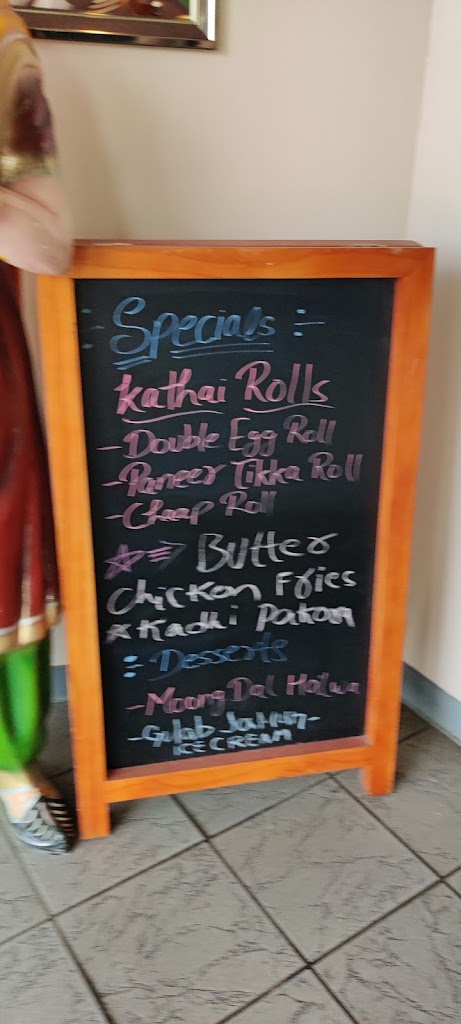 :- Specials :-
Kathai Rolls
- Double Egg Roll
- Paneer Tikka Roll
- Chaap Roll
Butter
Chicken Fries
* Kadhi Pakora
:- Desserts
- Moong Dal Halwa
- Gulab Jamun -
ICE CREAM